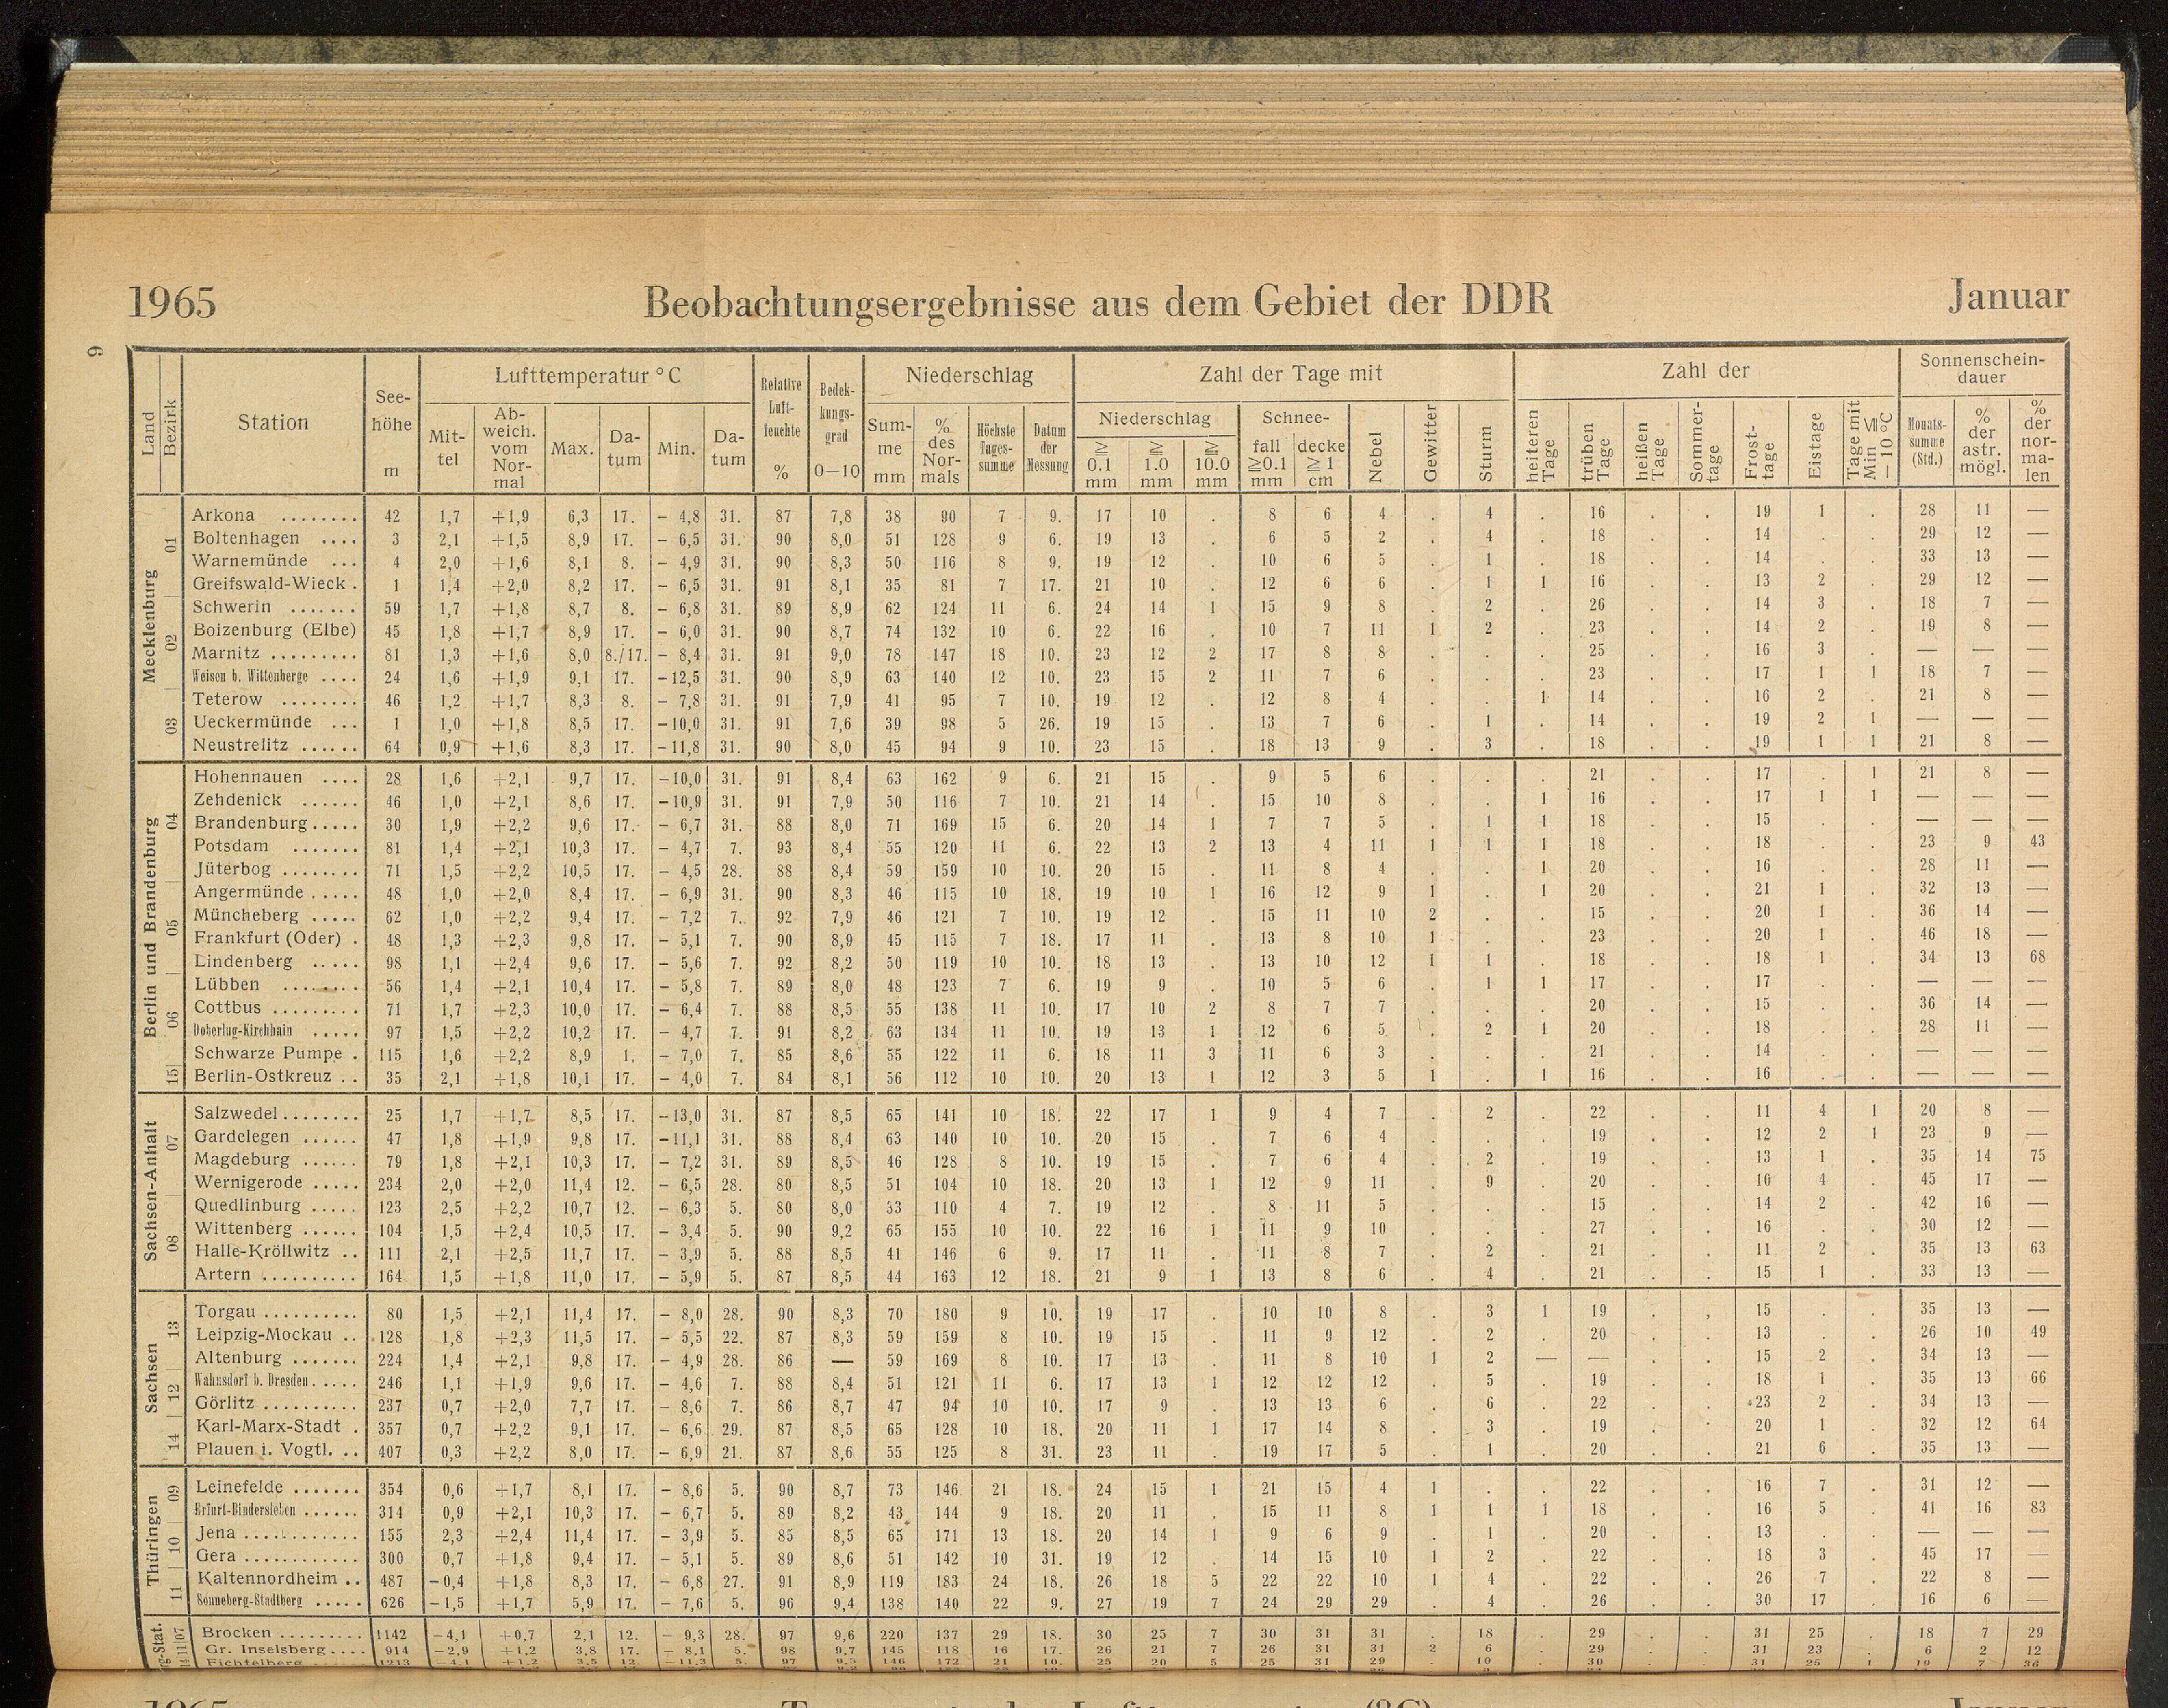 1965 Beobachtungsergebnisse aus dem Gebiet der DDR Januar
6
Land Bezirk Station See-höhe m Lufttemperatur °C Relative Luft-feuchte % Bedek-kungs-grad 0—10 Niederschlag Zahl der Tage mit Zahl der Sonnenschein-dauer
Mit-tel Ab-weich. vom Nor-mal Max. Da-tum Min. Da-tum Sum-me mm % des Nor-mals Höchste Tages-summe Datum der Messung Niederschlag ≧ 0.1 mm ≧ 1.0 mm ≧ 10.0 mm Schnee- fall ≧0.1 mm decke ≧ 1 cm Nebel Gewitter Sturm heiteren Tage trüben Tage heißen Tage Sommer-tage Frost-tage Eistage Tage mit Min ≦ — 10 °C Monats-summe (Std.) % der astr. mögl. % der nor-ma-len
Mecklenburg
01
Arkona ........ 42 1,7 +1,9 6,3 17. – 4,8 31. 87 7,8 38 90 7 9. 17 10 . 8 6 4 . 4 . 16 . . 19 1 . 28 11 —
Boltenhagen .... 3 2,1 +1,5 8,9 17. – 6,5 31. 90 8,0 51 128 9 6. 19 13 . 6 5 2 . 4 . 18 . . 14 . . 29 12 —
Warnemünde ... 4 2,0 +1,6 8,1 8. – 4,9 31. 90 8,3 50 116 8 9. 19 12 . 10 6 5 . 1 . 18 . . 14 . . 33 13 —
Greifswald-Wieck . 1 1,4 +2,0 8,2 17. – 6,5 31. 91 8,1 35 81 7 17. 21 10 . 12 6 6 . 1 1 16 . . 13 2 . 29 12 —
02
Schwerin ....... 59 1,7 +1,8 8,7 8. – 6,8 31. 89 8,9 62 124 11 6. 24 14 1 15 9 8 . 2 . 26 . . 14 3 . 18 7 —
Boizenburg (Elbe) 45 1,8 +1,7 8,9 17. – 6,0 31. 90 8,7 74 132 10 6. 22 16 . 10 7 11 1 2 . 23 . . 14 2 . 19 8 —
Marnitz ......... 81 1,3 +1,6 8,0 8./17. – 8,4 31. 91 9,0 78 147 18 10. 23 12 2 17 8 8 . . . 25 . . 16 3 . — — —
Weisen b. Wittenberge .... 24 1,6 +1,9 9,1 17. –12,5 31. 90 8,9 63 140 12 10. 23 15 2 11 7 6 . . . 23 . . 17 1 1 18 7 —
03
Teterow ........ 46 1,2 +1,7 8,3 8. – 7,8 31. 91 7,9 41 95 7 10. 19 12 . 12 8 4 . . 1 14 . . 16 2 . 21 8 —
Ueckermünde ... 1 1,0 +1,8 8,5 17. –10,0 31. 91 7,6 39 98 5 26. 19 15 . 13 7 6 . 1 . 14 . . 19 2 1 — — —
Neustrelitz ...... 64 0,9 +1,6 8,3 17. –11,8 31. 90 8,0 45 94 9 10. 23 15 . 18 13 9 . 3 . 18 . . 19 1 1 21 8 —
Berlin und Brandenburg
04
Hohennauen .... 28 1,6 +2,1 9,7 17. –10,0 31. 91 8,4 63 162 9 6. 21 15 . 9 5 6 . . . 21 . . 17 . 1 21 8 —
Zehdenick ...... 46 1,0 +2,1 8,6 17. –10,9 31. 91 7,9 50 116 7 10. 21 14 . 15 10 8 . . 1 16 . . 17 1 1 — — —
Brandenburg..... 30 1,9 +2,2 9,6 17. – 6,7 31. 88 8,0 71 169 15 6. 20 14 1 7 7 5 . 1 1 18 . . 15 . . — — —
Potsdam ....... 81 1,4 +2,1 10,3 17. – 4,7 7. 93 8,4 55 120 11 6. 22 13 2 13 4 11 1 1 1 18 . . 18 . . 23 9 43
Jüterbog ........ 71 1,5 +2,2 10,5 17. – 4,5 28. 88 8,4 59 159 10 10. 20 15 . 11 8 4 . . 1 20 . . 16 . . 28 11 —
05
Angermünde ..... 48 1,0 +2,0 8,4 17. – 6,9 31. 90 8,3 46 115 10 18. 19 10 1 16 12 9 1 . 1 20 . . 21 1 . 32 13 —
Müncheberg ..... 62 1,0 +2,2 9,4 17. – 7,2 7. 92 7,9 46 121 7 10. 19 12 . 15 11 10 2 . . 15 . . 20 1 . 36 14 —
Frankfurt (Oder) . 48 1,3 +2,3 9,8 17. – 5,1 7. 90 8,9 45 115 7 18. 17 11 . 13 8 10 1 . . 23 . . 20 1 . 46 18 —
Lindenberg ..... 98 1,1 +2,4 9,6 17. – 5,6 7. 92 8,2 50 119 10 10. 18 13 . 13 10 12 1 1 . 18 . . 18 1 . 34 13 68
06
Lübben ........ 56 1,4 +2,1 10,4 17. – 5,8 7. 89 8,0 48 123 7 6. 19 9 . 10 5 6 . 1 1 17 . . 17 . . — — —
Cottbus ......... 71 1,7 +2,3 10,0 17. – 6,4 7. 88 8,5 55 138 11 10. 17 10 2 8 7 7 . . . 20 . . 15 . . 36 14 —
Doberlug-Kirchhain ..... 97 1,5 +2,2 10,2 17. – 4,7 7. 91 8,2 63 134 11 10. 19 13 1 12 6 5 . 2 1 20 . . 18 . . 28 11 —
Schwarze Pumpe . 115 1,6 +2,2 8,9 1. – 7,0 7. 85 8,6 55 122 11 6. 18 11 3 11 6 3 . . . 21 . . 14 . . — — —
15
Berlin-Ostkreuz .. 35 2,1 +1,8 10,1 17. – 4,0 7. 84 8,1 56 112 10 10. 20 13 1 12 3 5 1 . 1 16 . . 16 . . — — —
Sachsen-Anhalt
07
Salzwedel........ 25 1,7 +1,7 8,5 17. –13,0 31. 87 8,5 65 141 10 18. 22 17 1 9 4 7 . 2 . 22 . . 11 4 1 20 8 —
Gardelegen ...... 47 1,8 +1,9 9,8 17. –11,1 31. 88 8,4 63 140 10 10. 20 15 . 7 6 4 . . . 19 . . 12 2 1 23 9 —
Magdeburg ...... 79 1,8 +2,1 10,3 17. – 7,2 31. 89 8,5 46 128 8 10. 19 15 . 7 6 4 . 2 . 19 . . 13 1 . 35 14 75
Wernigerode ..... 234 2,0 +2,0 11,4 12. – 6,5 28. 80 8,5 51 104 10 18. 20 13 1 12 9 11 . 9 . 20 . . 10 4 . 45 17 —
08
Quedlinburg ..... 123 2,5 +2,2 10,7 12. – 6,3 5. 80 8,0 33 110 4 7. 19 12 . 8 11 5 . . . 15 . . 14 2 . 42 16 —
Wittenberg ...... 104 1,5 +2,4 10,5 17. – 3,4 5. 90 9,2 65 155 10 10. 22 16 1 11 9 10 . . . 27 . . 16 . . 30 12 —
Halle-Kröllwitz .. 111 2,1 +2,5 11,7 17. – 3,9 5. 88 8,5 41 146 6 9. 17 11 . 11 8 7 . 2 . 21 . . 11 2 . 35 13 63
Artern .......... 164 1,5 +1,8 11,0 17. – 5,9 5. 87 8,5 44 163 12 18. 21 9 1 13 8 6 . 4 . 21 . . 15 1 . 33 13 —
Sachsen
13
Torgau .......... 80 1,5 +2,1 11,4 17. – 8,0 28. 90 8,3 70 180 9 10. 19 17 . 10 10 8 . 3 1 19 . . 15 . . 35 13 —
Leipzig-Mockau .. 128 1,8 +2,3 11,5 17. – 5,5 22. 87 8,3 59 159 8 10. 19 15 . 11 9 12 . 2 . 20 . . 13 . . 26 10 49
Altenburg ....... 224 1,4 +2,1 9,8 17. – 4,9 28. 86 — 59 169 8 10. 17 13 . 11 8 10 1 2 — — . . 15 2 . 34 13 —
12
Wahnsdorf b. Dresden..... 246 1,1 +1,9 9,6 17. – 4,6 7. 88 8,4 51 121 11 6. 17 13 1 12 12 12 . 5 . 19 . . 18 1 . 35 13 66
Görlitz .......... 237 0,7 +2,0 7,7 17. – 8,6 7. 86 8,7 47 94 10 10. 17 9 . 13 13 6 . 6 . 22 . . 23 2 . 34 13 —
14
Karl-Marx-Stadt . 357 0,7 +2,2 9,1 17. – 6,6 29. 87 8,5 65 128 10 18. 20 11 1 17 14 8 . 3 . 19 . . 20 1 . 32 12 64
Plauen i. Vogtl. .. 407 0,3 +2,2 8,0 17. – 6,9 21. 87 8,6 55 125 8 31. 23 11 . 19 17 5 . 1 . 20 . . 21 6 . 35 13 —
Thüringen
09
Leinefelde ....... 354 0,6 +1,7 8,1 17. – 8,6 5. 90 8,7 73 146 21 18. 24 15 1 21 15 4 1 . . 22 . . 16 7 . 31 12 —
Erfurt-Bindersleben ...... 314 0,9 +2,1 10,3 17. – 6,7 5. 89 8,2 43 144 9 18. 20 11 . 15 11 8 1 1 1 18 . . 16 5 . 41 16 83
10
Jena ............ 155 2,3 +2,4 11,4 17. – 3,9 5. 85 8,5 65 171 13 18. 20 14 1 9 6 9 . 1 . 20 . . 13 . . — — —
Gera ............ 300 0,7 +1,8 9,4 17. – 5,1 5. 89 8,6 51 142 10 31. 19 12 . 14 15 10 1 2 . 22 . . 18 3 . 45 17 —
11
Kaltennordheim .. 487 –0,4 +1,8 8,3 17. – 6,8 27. 91 8,9 119 183 24 18. 26 18 5 22 22 10 1 4 . 22 . . 26 7 . 22 8 —
Sonneberg-Stadtberg ..... 626 –1,5 +1,7 5,9 17. – 7,6 5. 96 9,4 138 140 22 9. 27 19 7 24 29 29 . 4 . 26 . . 30 17 . 16 6 —
rg-Stat.
14|11|07
Brocken ......... 1142 –4,1 +0,7 2,1 12. – 9,3 28. 97 9,6 220 137 29 18. 30 25 7 30 31 31 . 18 . 29 . . 31 25 . 18 7 29
Gr. Inselsberg.... 914 –2,9 +1,2 3,8 17. – 8,1 5. 98 9,7 145 118 16 17. 26 21 7 26 31 31 2 6 . 29 . . 31 23 . 6 2 12
Fichtelberg 1213 –4,1 +1,2 3,5 12. –11,3 5. 97 9,5 146 172 21 10. 25 20 5 25 31 29 . 10 . 30 . . 31 25 1 19 7 36
1965 Januar